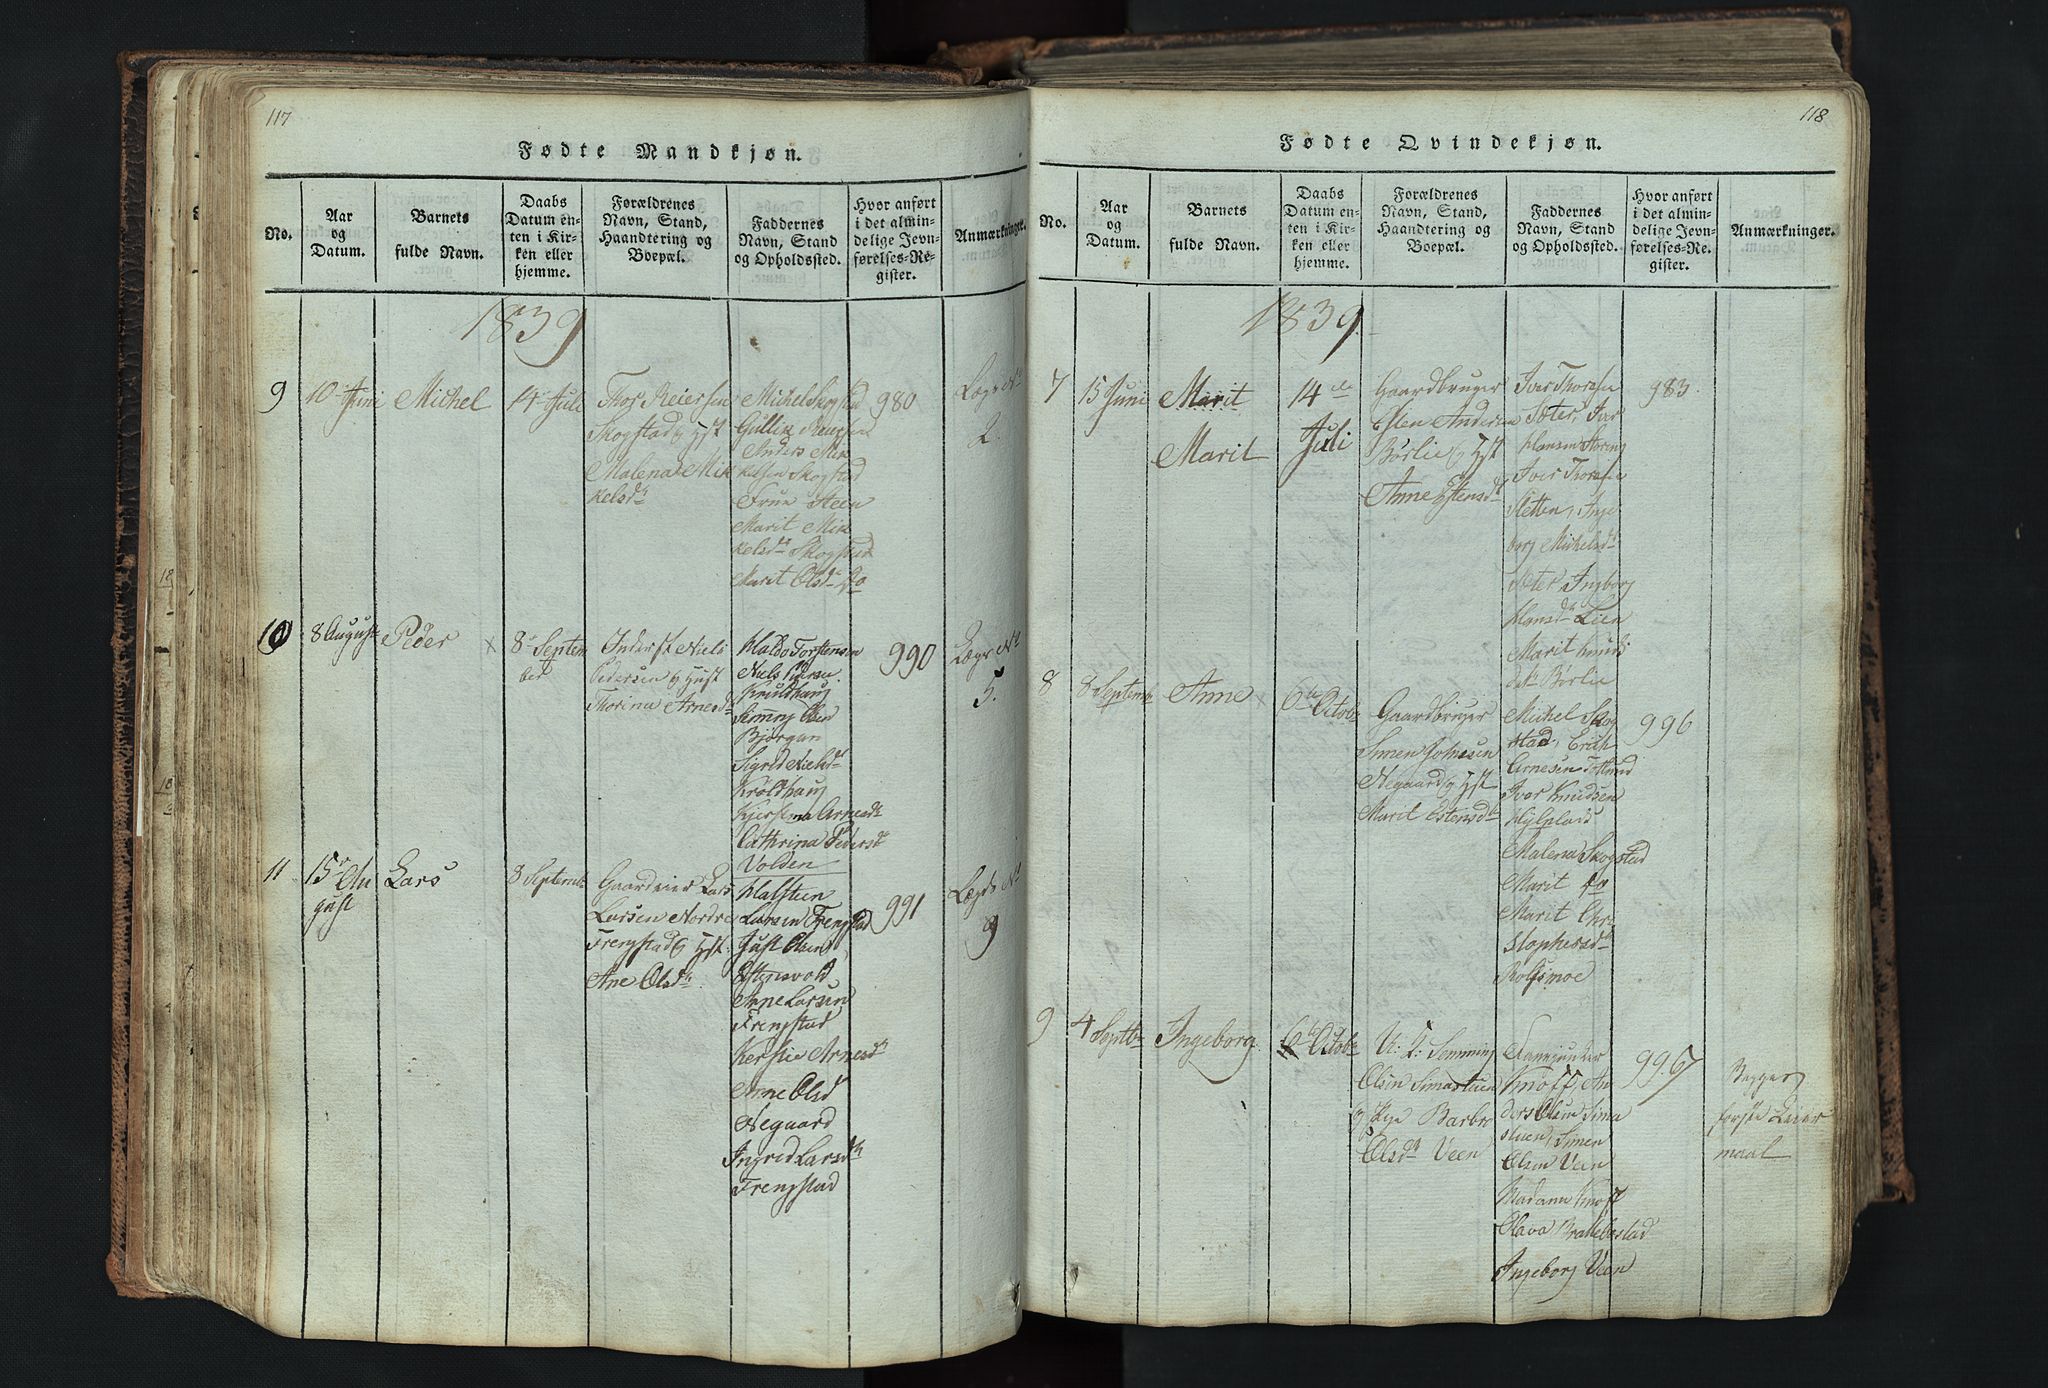 117
Fødte Mandkjøn.
No.
Aar
og
Datum.
Barnets
fulde Navn.
Daabs
Datum en-
ten i Kir-
ken eller
hjemme.
Forældrenes
Navn, Stand,
Haandtering og
Boepæl.
Faddernes
Navn, Stand
og Opholdssted.
Hvor anført
i det almin-
delige Jevn-
førelses-Re-
gister.
Anmærkninger.
1839
9
10 Juni
Michel
14 Juli
Thor Reiersen
Skogstad og Hst
Malena Mik
kelsdr
Michel Skogstad
Gullik
Anders Mik
kelsen Skogstad
Frue Steen
Marit Mik
kelsdr Skogstad
Marit Olsdr do
980
Lægs No
2.
10
8 August
Peder
8 Septem
ber
Inderst Niels
Pedersen og Hust
Thorina Arnesdr
Haldo Torstensen
Niels Pedersen
Kroldhaug
Simmng Olsen
Bjørgan
Sigrid Nielsdr
Kroldhaug
Kjerstina Arnesdr
Cathrina Pedersdr
Volden
990
Lægs No
5.
11
15 Au
gust
Lars
8 Septembr
Gaardeier Lars
Larsen Nordre
Frengstad og Hst
Ane Olsdr
Halsteen
Larsen Frengstad
Just Olsen
Estensvold
Arne Larsen
Frengstad
Kerstie Arnesdr
Anne Olsd
Negaard
Ingrid Larsdr
Frengstad
991
Lægds No
9
118
Fødte Qvindekjøn.
No.
Aar
og
Datum.
Barnets
fulde Navn.
Daabs
Datum en-
ten i Kir-
ken eller
hjemme.
Forældrenes
Navn, Stand,
Haandtering og
Boepæl.
Faddernes
Navn, Stand
og Opholdssted.
Hvor anført
i det almin-
delige Jevn-
førelses-Re-
gister.
Anmærkninger.
1839
7
15 Juni
Marit
Marit
14de
Juli
Gaardbruger
Esten Andersen
Børlie og Hst
Anne Estensdr
Iver Thorsen
Sæter, Iver
Hansen Storeng
Iver Thorsen
Sletten, Inge
borg Michelsdr
Sæter Ingborg
Hansdr Lien
Marit Knuds
dtr Børlie
983
8
8 Septembr
Anne
6te Octobr
Gaardbruger
Simen Johnsen
Negaard og Hst
Marit Estensdr
Michel Skog
stad, Erich
Arnesen
Iver Knudsen
Malena Skogstad
Marit do
Marit Chri
stophersdr
Rolfsmoe
996
9
4 Septbr
Ingeborg
6te Octobr
U: K: Semming
Olsen Simastuen
og Pige Barbro
Olsdr Veen
Fanejunker
Knoff, An
ders Olsen Sima
stuen, Simen
Olsen Veen
Madame Knoff
Olava Brækkebrstad
Ingeborg Veen
997
Begges
første Leier
maal